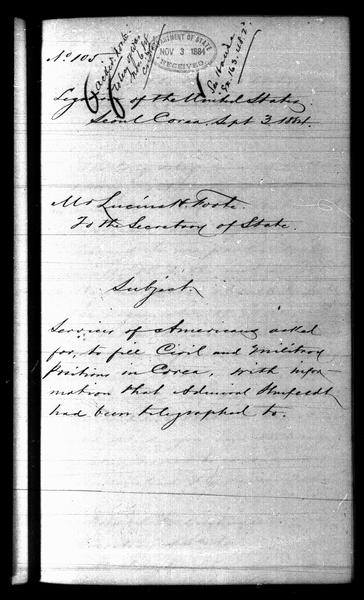 No 105
DEPARTMENT OF STATE
NOV 3 1884
RECEIVED
Legation of the United States
Seoul Corea, Sept 3, 1884.
Mr Lucius H Foote.
To the Secretary of State.
Subject.
Services of Americans asked
for, to fill Civil and Military
Positions in Corea, with infor
mation that Admiral Shufeldt
had been telegraphed to.